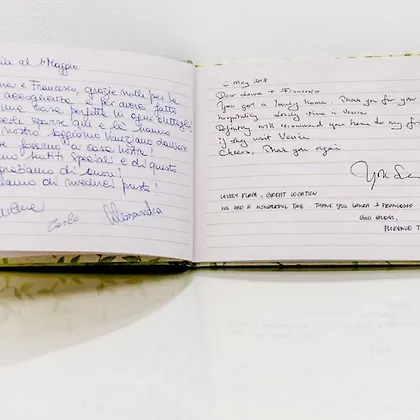 al 1 Maggio
e Francesco, grazie mille per la
accoglienza e per aver fatto
una casa perfetta in ogni dettaglio
sparse qui e là hanno
nostro soggiorno veneziano davvero
a casa vostra
sentiti speciali e di questo
di cuore!
di rivederci presto!
Carlo Alessandra
May 2018
Dear Laura + Francesco
You got a lovely home. Thank you for your
hospitality during time in Venice
Definitely will recommend your home to my
if they visit Venice.
Cheers, Thank you again
LOVELY PLACE, GREAT LOCATION
WE HAD A WONDERFUL TIME THANK YOU LAURA & FRANCESCO
GOD BLESS,